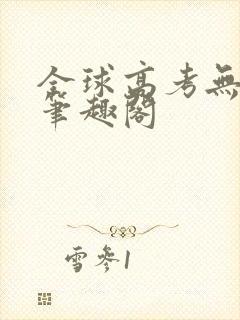 全球高考無
筆趣閣
雪參1